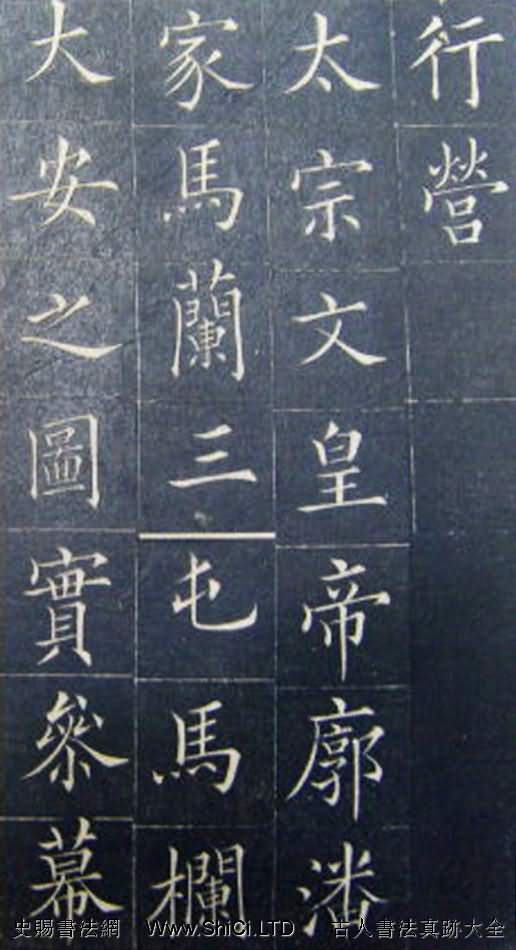 行營
太宗文皇帝廓潘
家馬蘭三屯馬欄
大安之圖實參幕
史賜書法網 Www.ShiCi.LTD 古人書法真跡大全